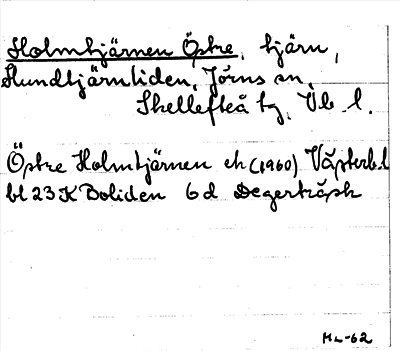 Holmtjärnen Östre, tjärn,
Hundtjärnliden, Jörns sn,
Skellefteå tg, Vb l.
Östre Holmtjärnen ek (1960) Västerb. l
bl 23 K Boliden 6d Degerträsk
HL-62